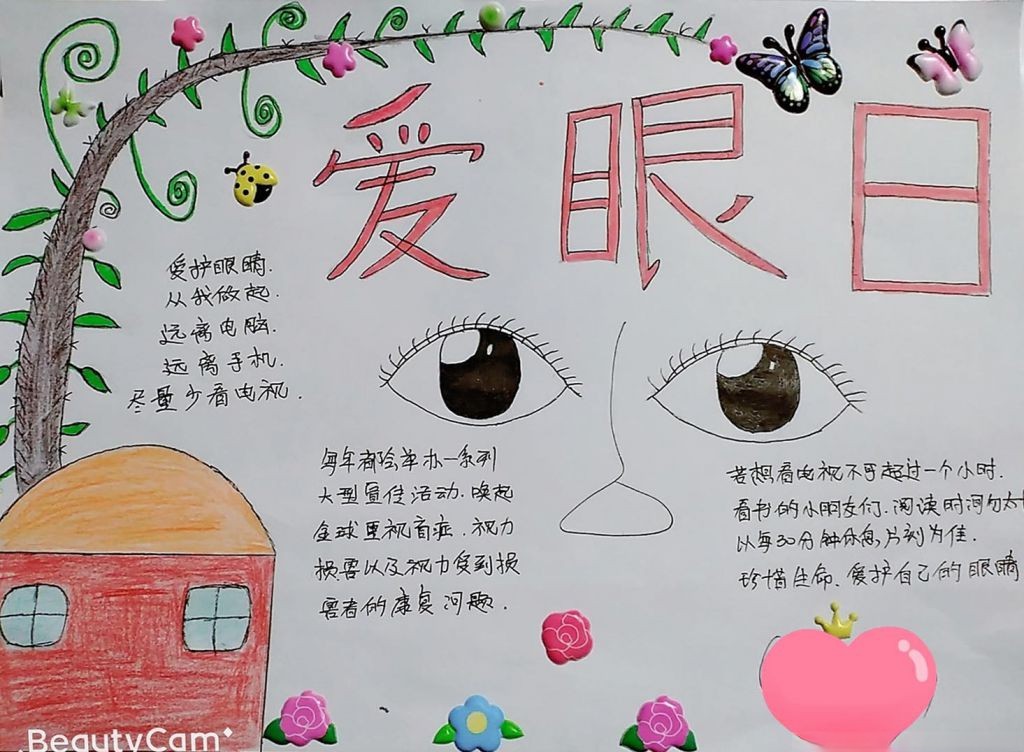 爱眼日
爱护眼睛.
从我做起.
远离电脑.
远离手机.
尽量少看电视.
每年都会举办一系列
大型宣传活动.唤起
全球重视盲症.视力
损害以及视力受到损
害者的康复问题.
若想看电视不可超过一个小时.
看书的小朋友们.阅读时间勿太
以每30分钟休息片刻为佳.
珍惜生命.爱护自己的眼睛
BeautyCam